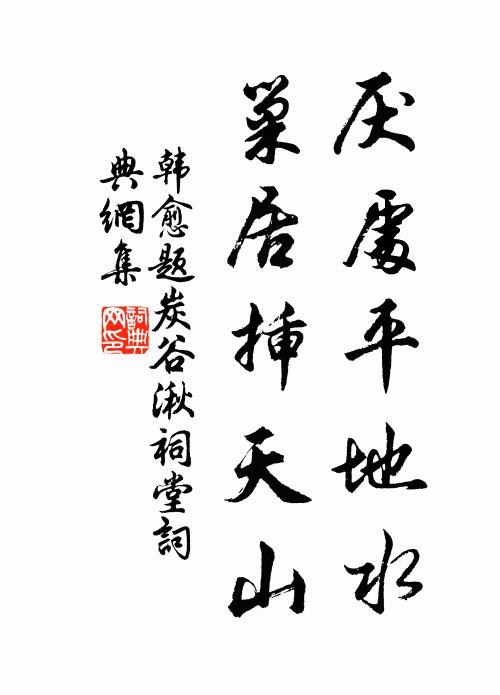 厌處平地水
巢居挿天山
韩愈题炭谷湫祠堂詞
典網集
詞典
网印